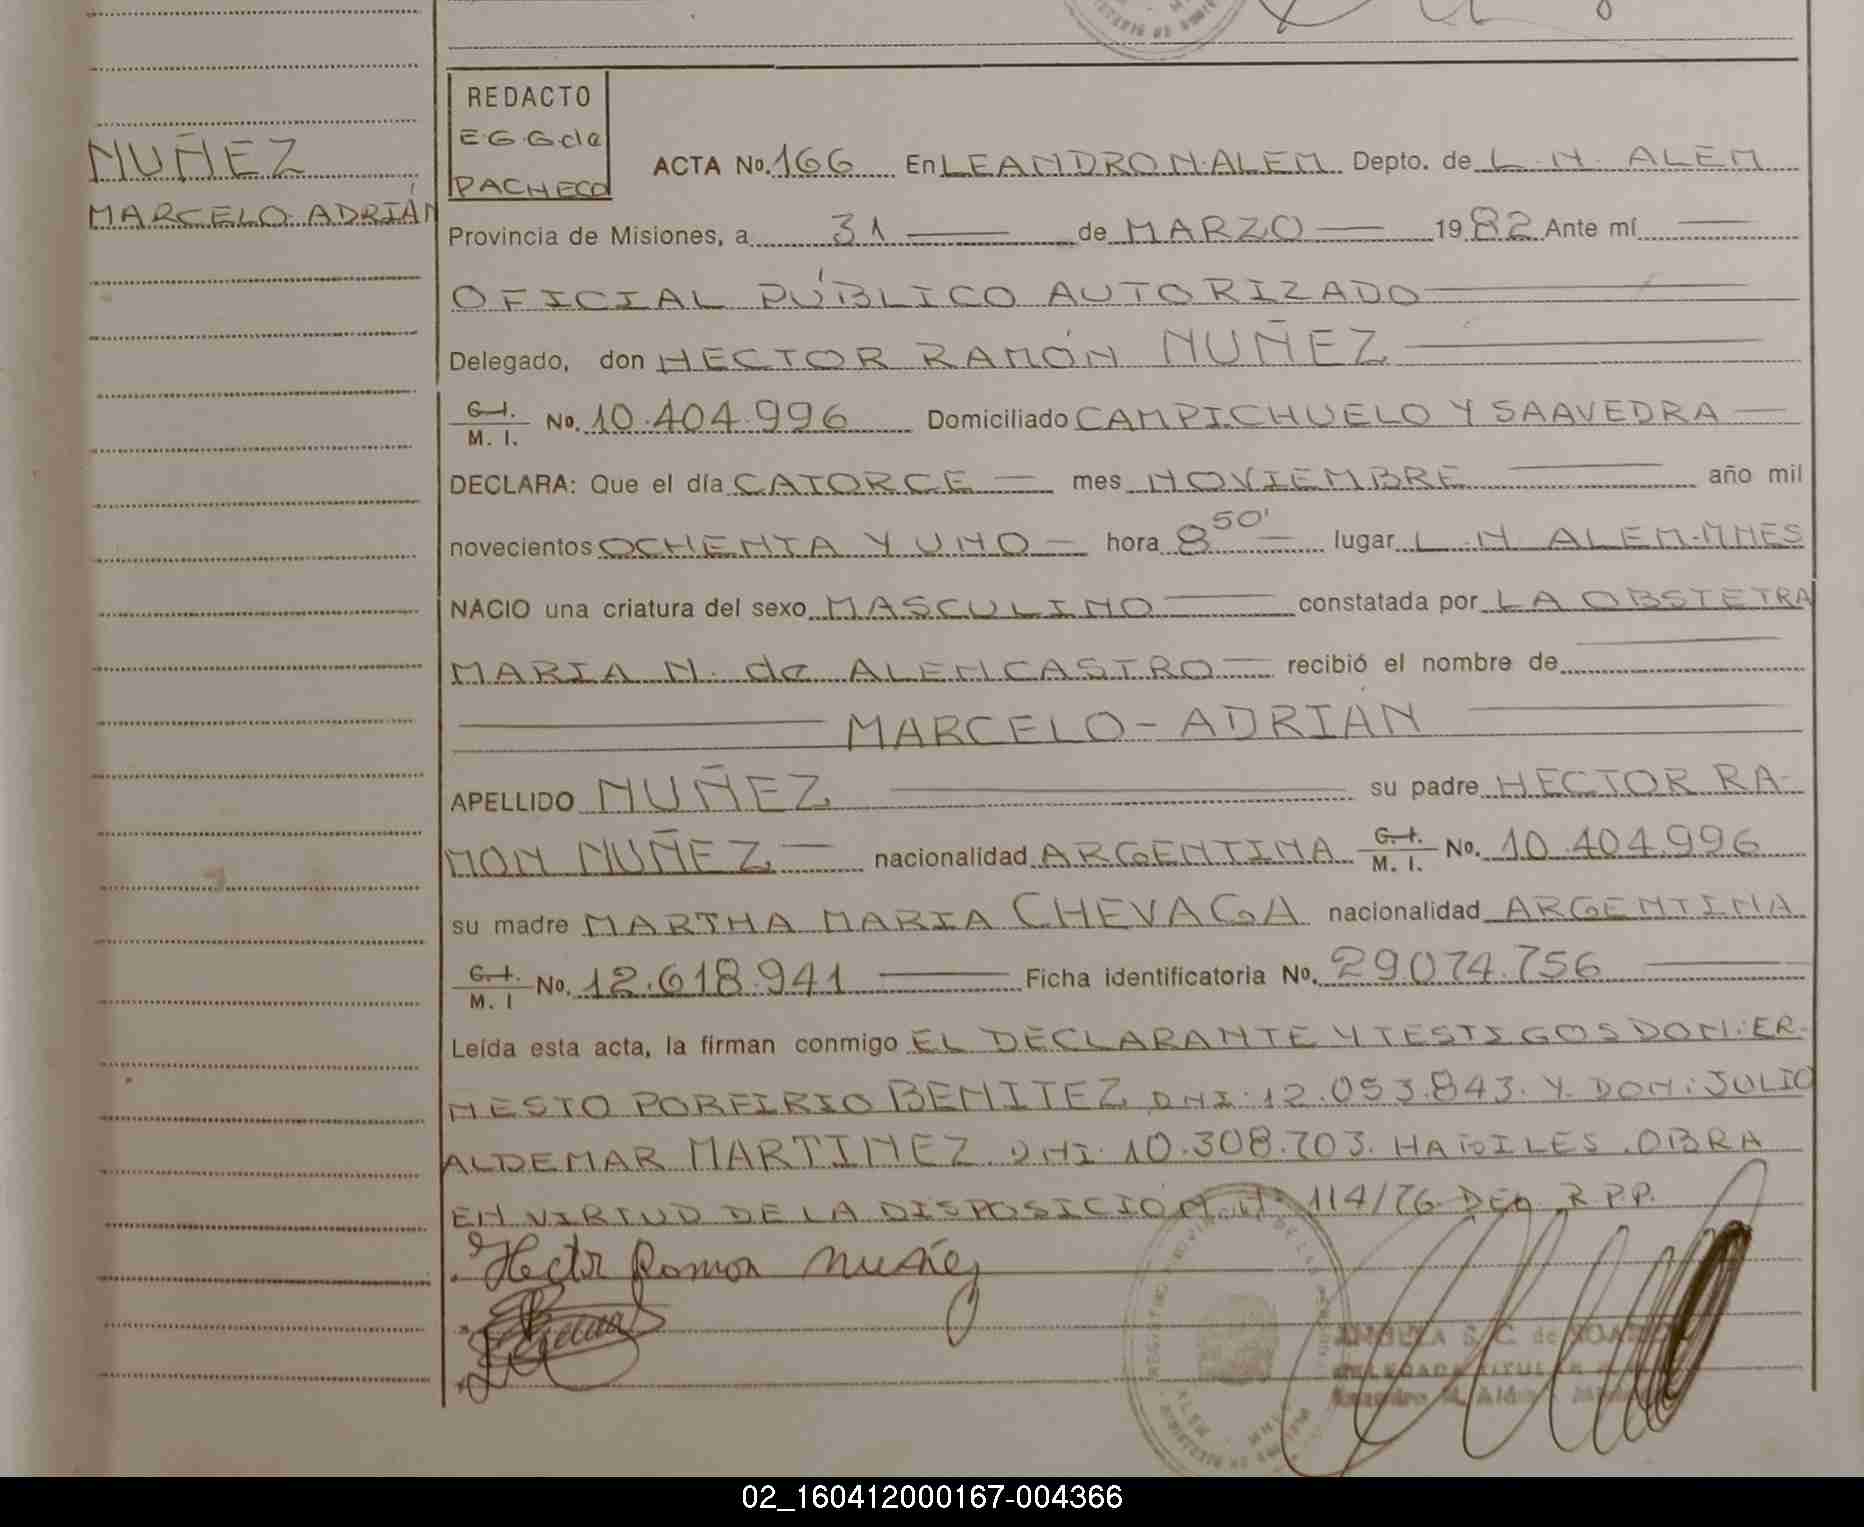 NUÑEZ
MARCELO ADRIÁN
REDACTO
E·G·G·de
PACHECO
ACTA No. 166 En LEANDRO N. ALEM Depto. de L. N. ALEM
Provincia de Misiones, a 31 — de MARZO — 1982 Ante mí —
OFICIAL PÚBLICO AUTORIZADO —
Delegado, don HECTOR RAMÓN NUÑEZ —
C. I. / M. I. No. 10.404.996 Domiciliado CAMPICHUELO Y SAAVEDRA —
DECLARA: Que el día CATORCE — mes NOVIEMBRE — año mil
novecientos OCHENTA Y UNO — hora 8 50' — lugar L. N. ALEM-MNES
NACIO una criatura del sexo MASCULINO — constatada por LA OBSTETRA
MARIA N. de ALENCASTRO — recibió el nombre de —
— MARCELO - ADRIAN —
APELLIDO NUÑEZ — su padre HECTOR RA-
MON NUÑEZ — nacionalidad ARGENTINA C. I. / M. I. No. 10.404.996
su madre MARTHA MARIA CHEVAGA nacionalidad ARGENTINA
C. I. / M. I No. 12.618.941 — Ficha identificatoria No. 29.074.756 —
Leída esta acta, la firman conmigo EL DECLARANTE Y TESTIGOS DON: ER-
NESTO PORFIRIO BENITEZ DNI: 12.053.843. Y. DON: JULIO
ALDEMAR MARTINEZ DNI. 10.308.703. HABILES. OBRA
EN VIRTUD DE LA DISPOSICION Nº 114/76 DEQ. R.P.P.
Hector Ramon Nuñez
S. C. de
DELEGADA TITULAR
Leandro N. Alem
02_160412000167-004366